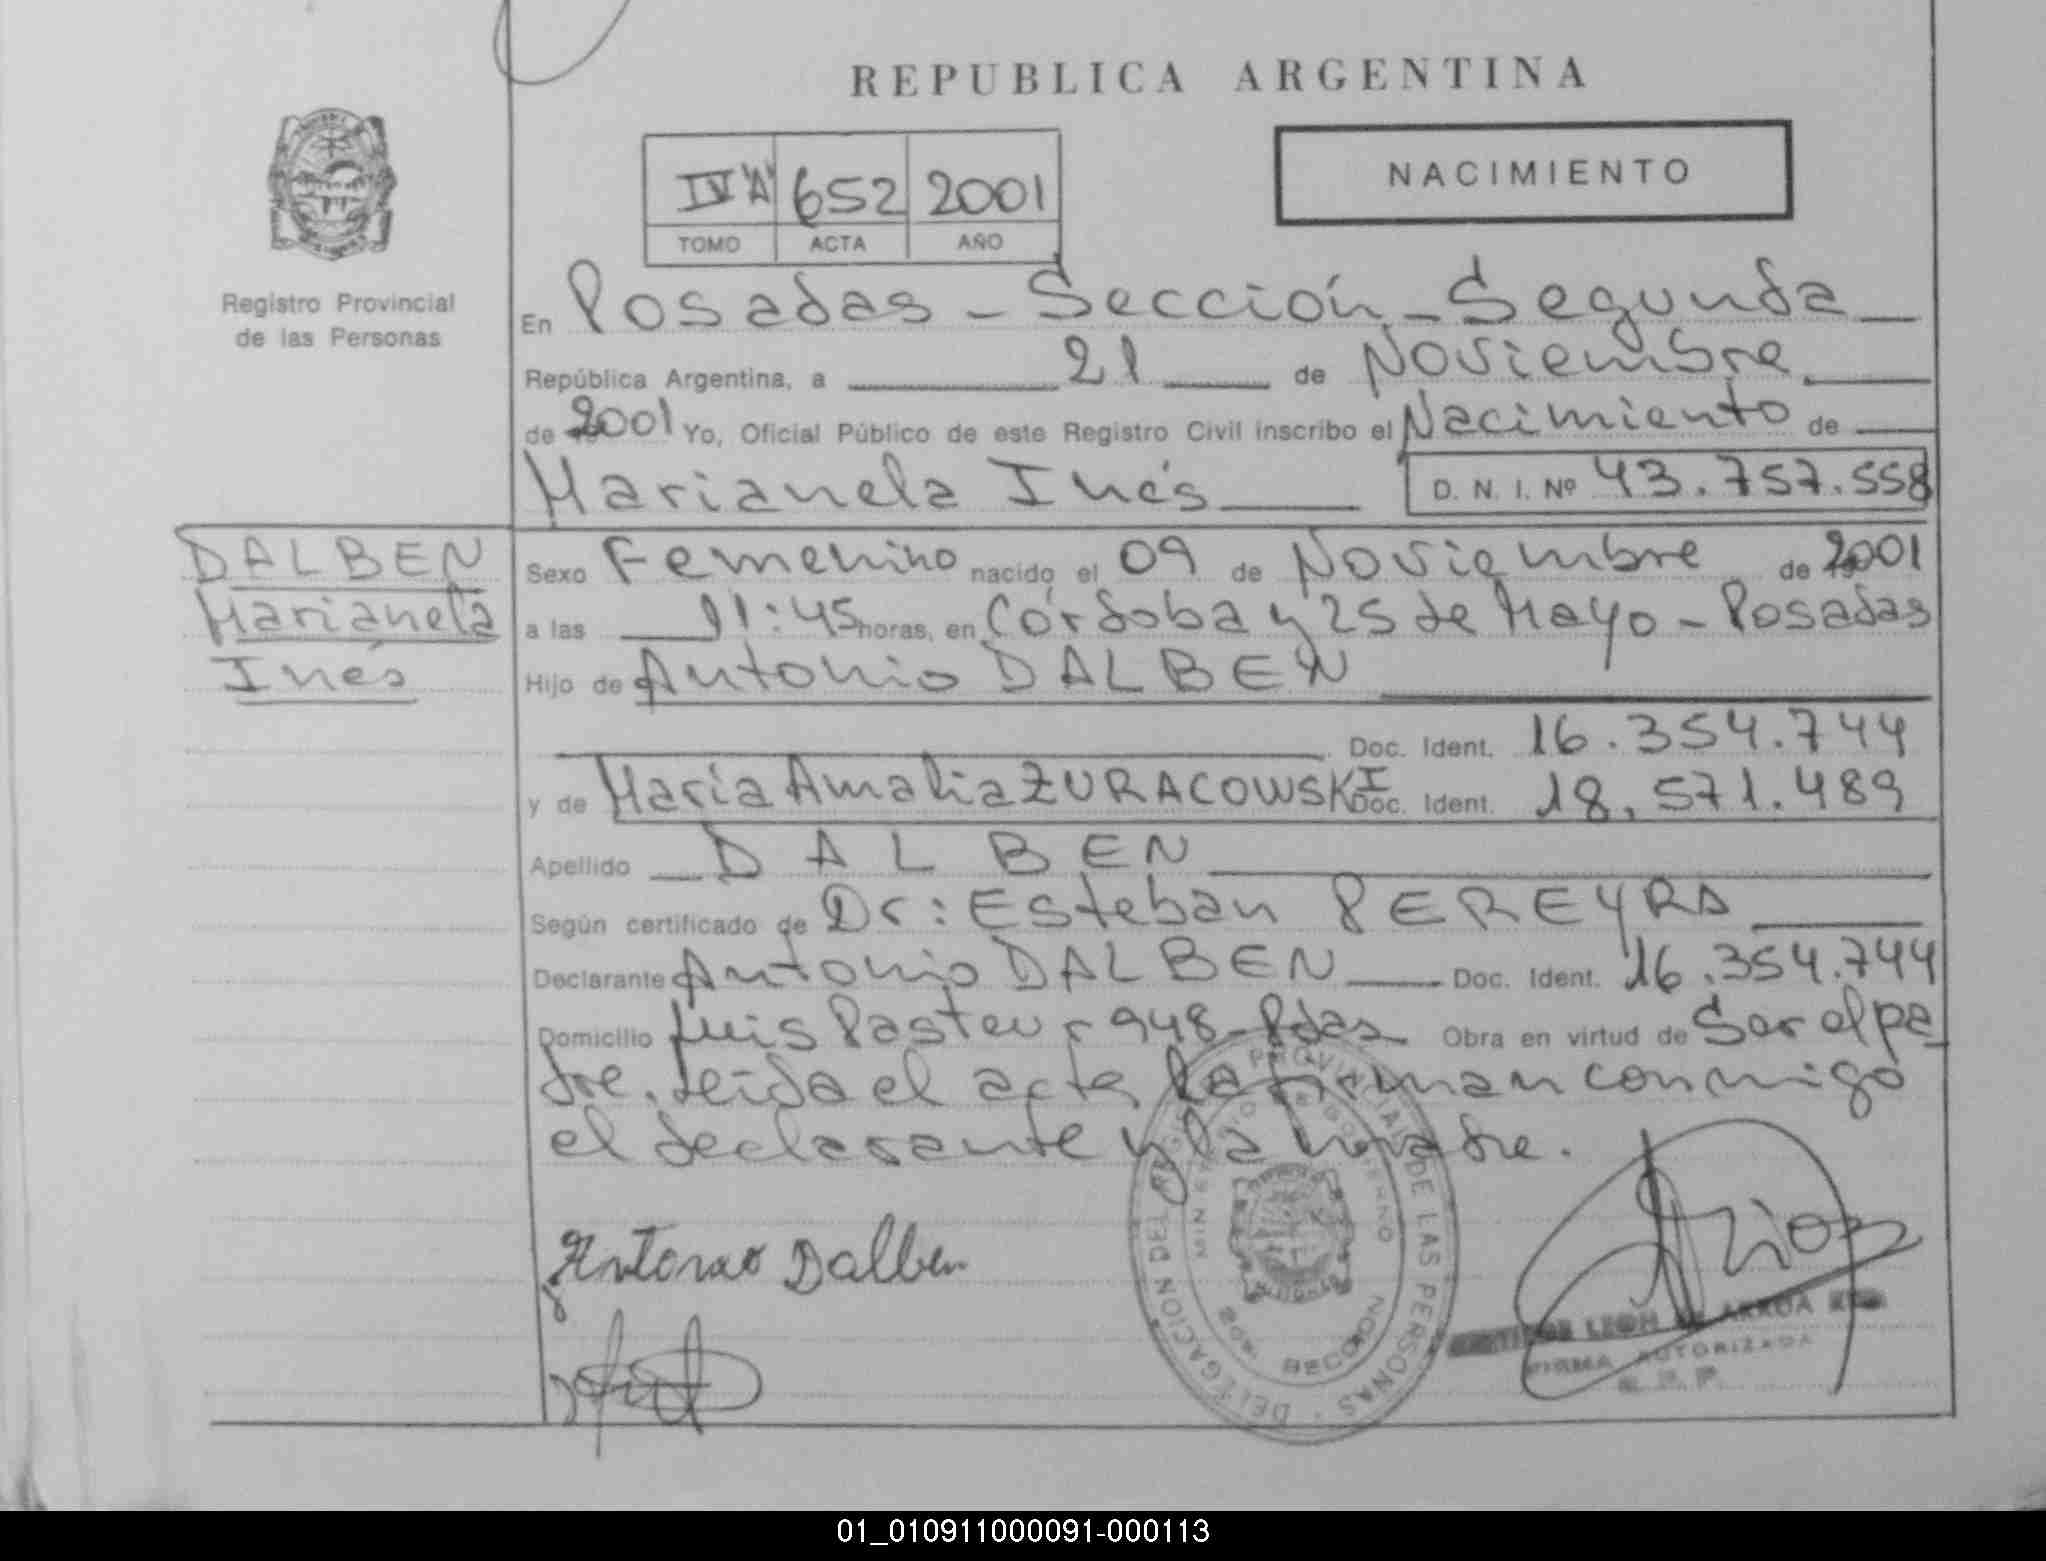 REPUBLICA ARGENTINA
NACIMIENTO
IV "A" 652 2001
TOMO ACTA AÑO
Registro Provincial
de las Personas
En Posadas - Sección - Segunda
República Argentina, a 21 de Noviembre
de 2001 Yo, Oficial Público de este Registro Civil inscribo el Nacimiento de
Marianela Inés D. N. I. Nº 43.757.558
DALBEN
Marianela
Inés
Sexo Femenino nacido el 09 de Noviembre de 2001
a las 11:45 horas, en Córdoba y 25 de Mayo - Posadas
Hijo de Antonio DALBEN
Doc. Ident. 16.354.744
y de María Amalia ZURACOWSKI Doc. Ident. 18.571.489
Apellido DALBEN
Según certificado de Dr: Esteban PEREYRA
Declarante Antonio DALBEN Doc. Ident. 16.354.744
Domicilio Luis Pasteur 948 - Pdas Obra en virtud de Ser el pa
dre. Leída el acta la firman conmigo
el declarante y la madre.
Antonio Dalben
DELEGACION DEL REGISTRO PROVINCIAL DE LAS PERSONAS
MINISTERIO DE GOBIERNO
SECCION
LEON DE ARRUA
FIRMA AUTORIZADA
01_010911000091-000113